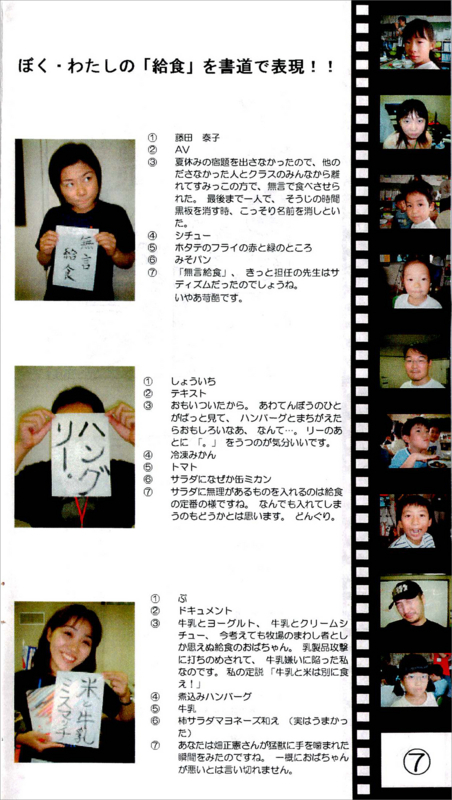 ぼく・わたしの「給食」を書道で表現！！
無言
給食
① 藤田 泰子
② AV
③ 夏休みの宿題を出さなかったので、他の
ださなかった人とクラスのみんなから離
れてすみっこの方で、無言で食べさせら
れた。 最後まで一人で、 そうじの時間
黒板を消す時、こっそり名前を消しとい
た。
④ シチュー
⑤ ホタテのフライの赤と緑のところ
⑥ みそパン
⑦ 「無言給食」、 きっと担任の先生はサ
ディズムだったのでしょうね。
いやあ苛酷です。
ハング
リー。
① しょういち
② テキスト
③ おもいついたから。 あわてんぼうのひと
がぱっと見て、 ハンバーグとまちがえた
らおもしろいなあ、 なんて…。 リーのあ
とに 「。」 をうつのが気分いいです。
④ 冷凍みかん
⑤ トマト
⑥ サラダになぜか缶ミカン
⑦ サラダに無理があるものを入れるのは給食
の定番の様ですね。 なんでも入れてしま
うのもどうかとは思います。 どんぐり。
米と牛乳
ミスマッチ
① ぶ
② ドキュメント
③ 牛乳とヨーグルト、 牛乳とクリームシ
チュー、 今考えても牧場のまわし者とし
か思えぬ給食のおばちゃん。 乳製品攻撃
に打ちのめされて、 牛乳嫌いに陥った私
なのです。 私の定説 「牛乳と米は別に食
え！」
④ 煮込みハンバーグ
⑤ 牛乳
⑥ 柿サラダマヨネーズ和え （実はうまかっ
た）
⑦ あなたは畑正憲さんが猛獣に手を噛まれた
瞬間をみたのですね。 一概におばちゃん
が悪いとは言い切れません。
⑦